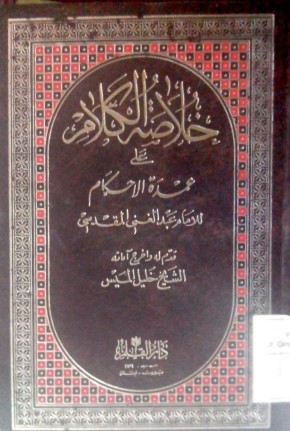 خلاصة الكلام
على
عمدة الاحكام
للامام عبد الغني المقدسي
قدم له واخرج آياته
الشيخ خليل الميس
دار القلم
بيروت - لبنان